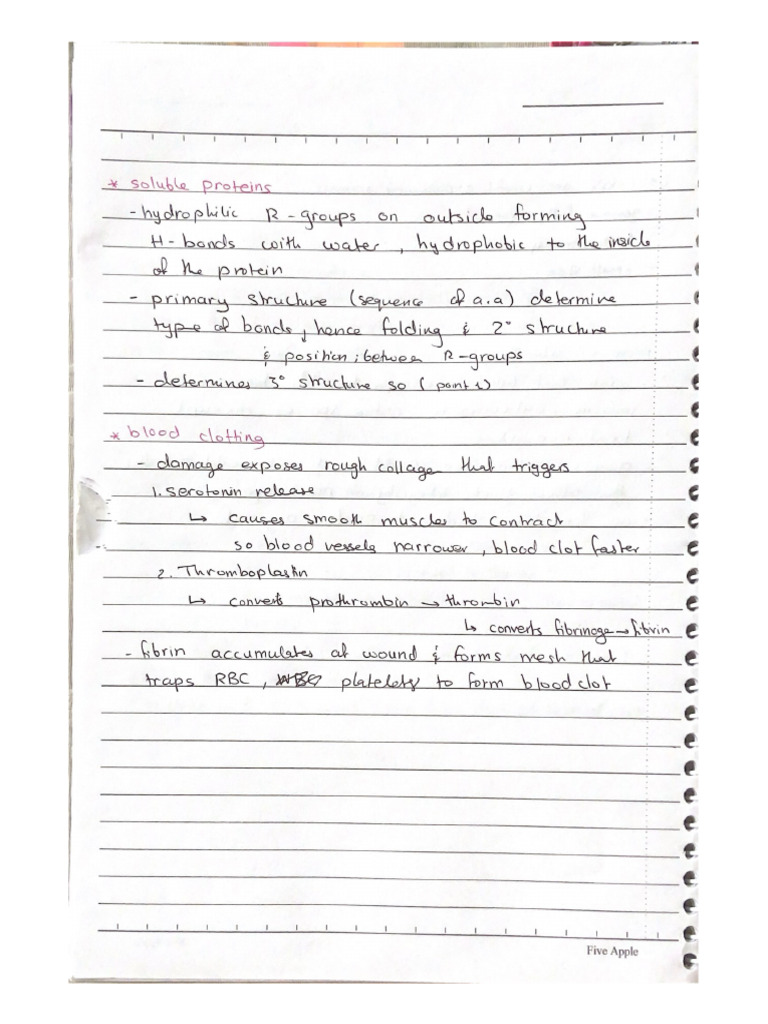 * soluble proteins
- hydrophilic R-groups on outside forming
H-bonds with water, hydrophobic to the inside
of the protein
- primary structure (sequence of a.a) determine
type of bonds, hence folding & 2° structure
& position; between R-groups
- determines 3° structure so (point 1)
* blood clotting
- damage exposes rough collage that triggers
1. serotonin release
↳ causes smooth muscles to contract
so blood vessels narrower, blood clot faster
2. Thromboplastin
↳ converts prothrombin → thrombin
↳ converts fibrinoge → fibrin
- fibrin accumulates at wound & forms mesh that
traps RBC, platelets to form blood clot
Five Apple